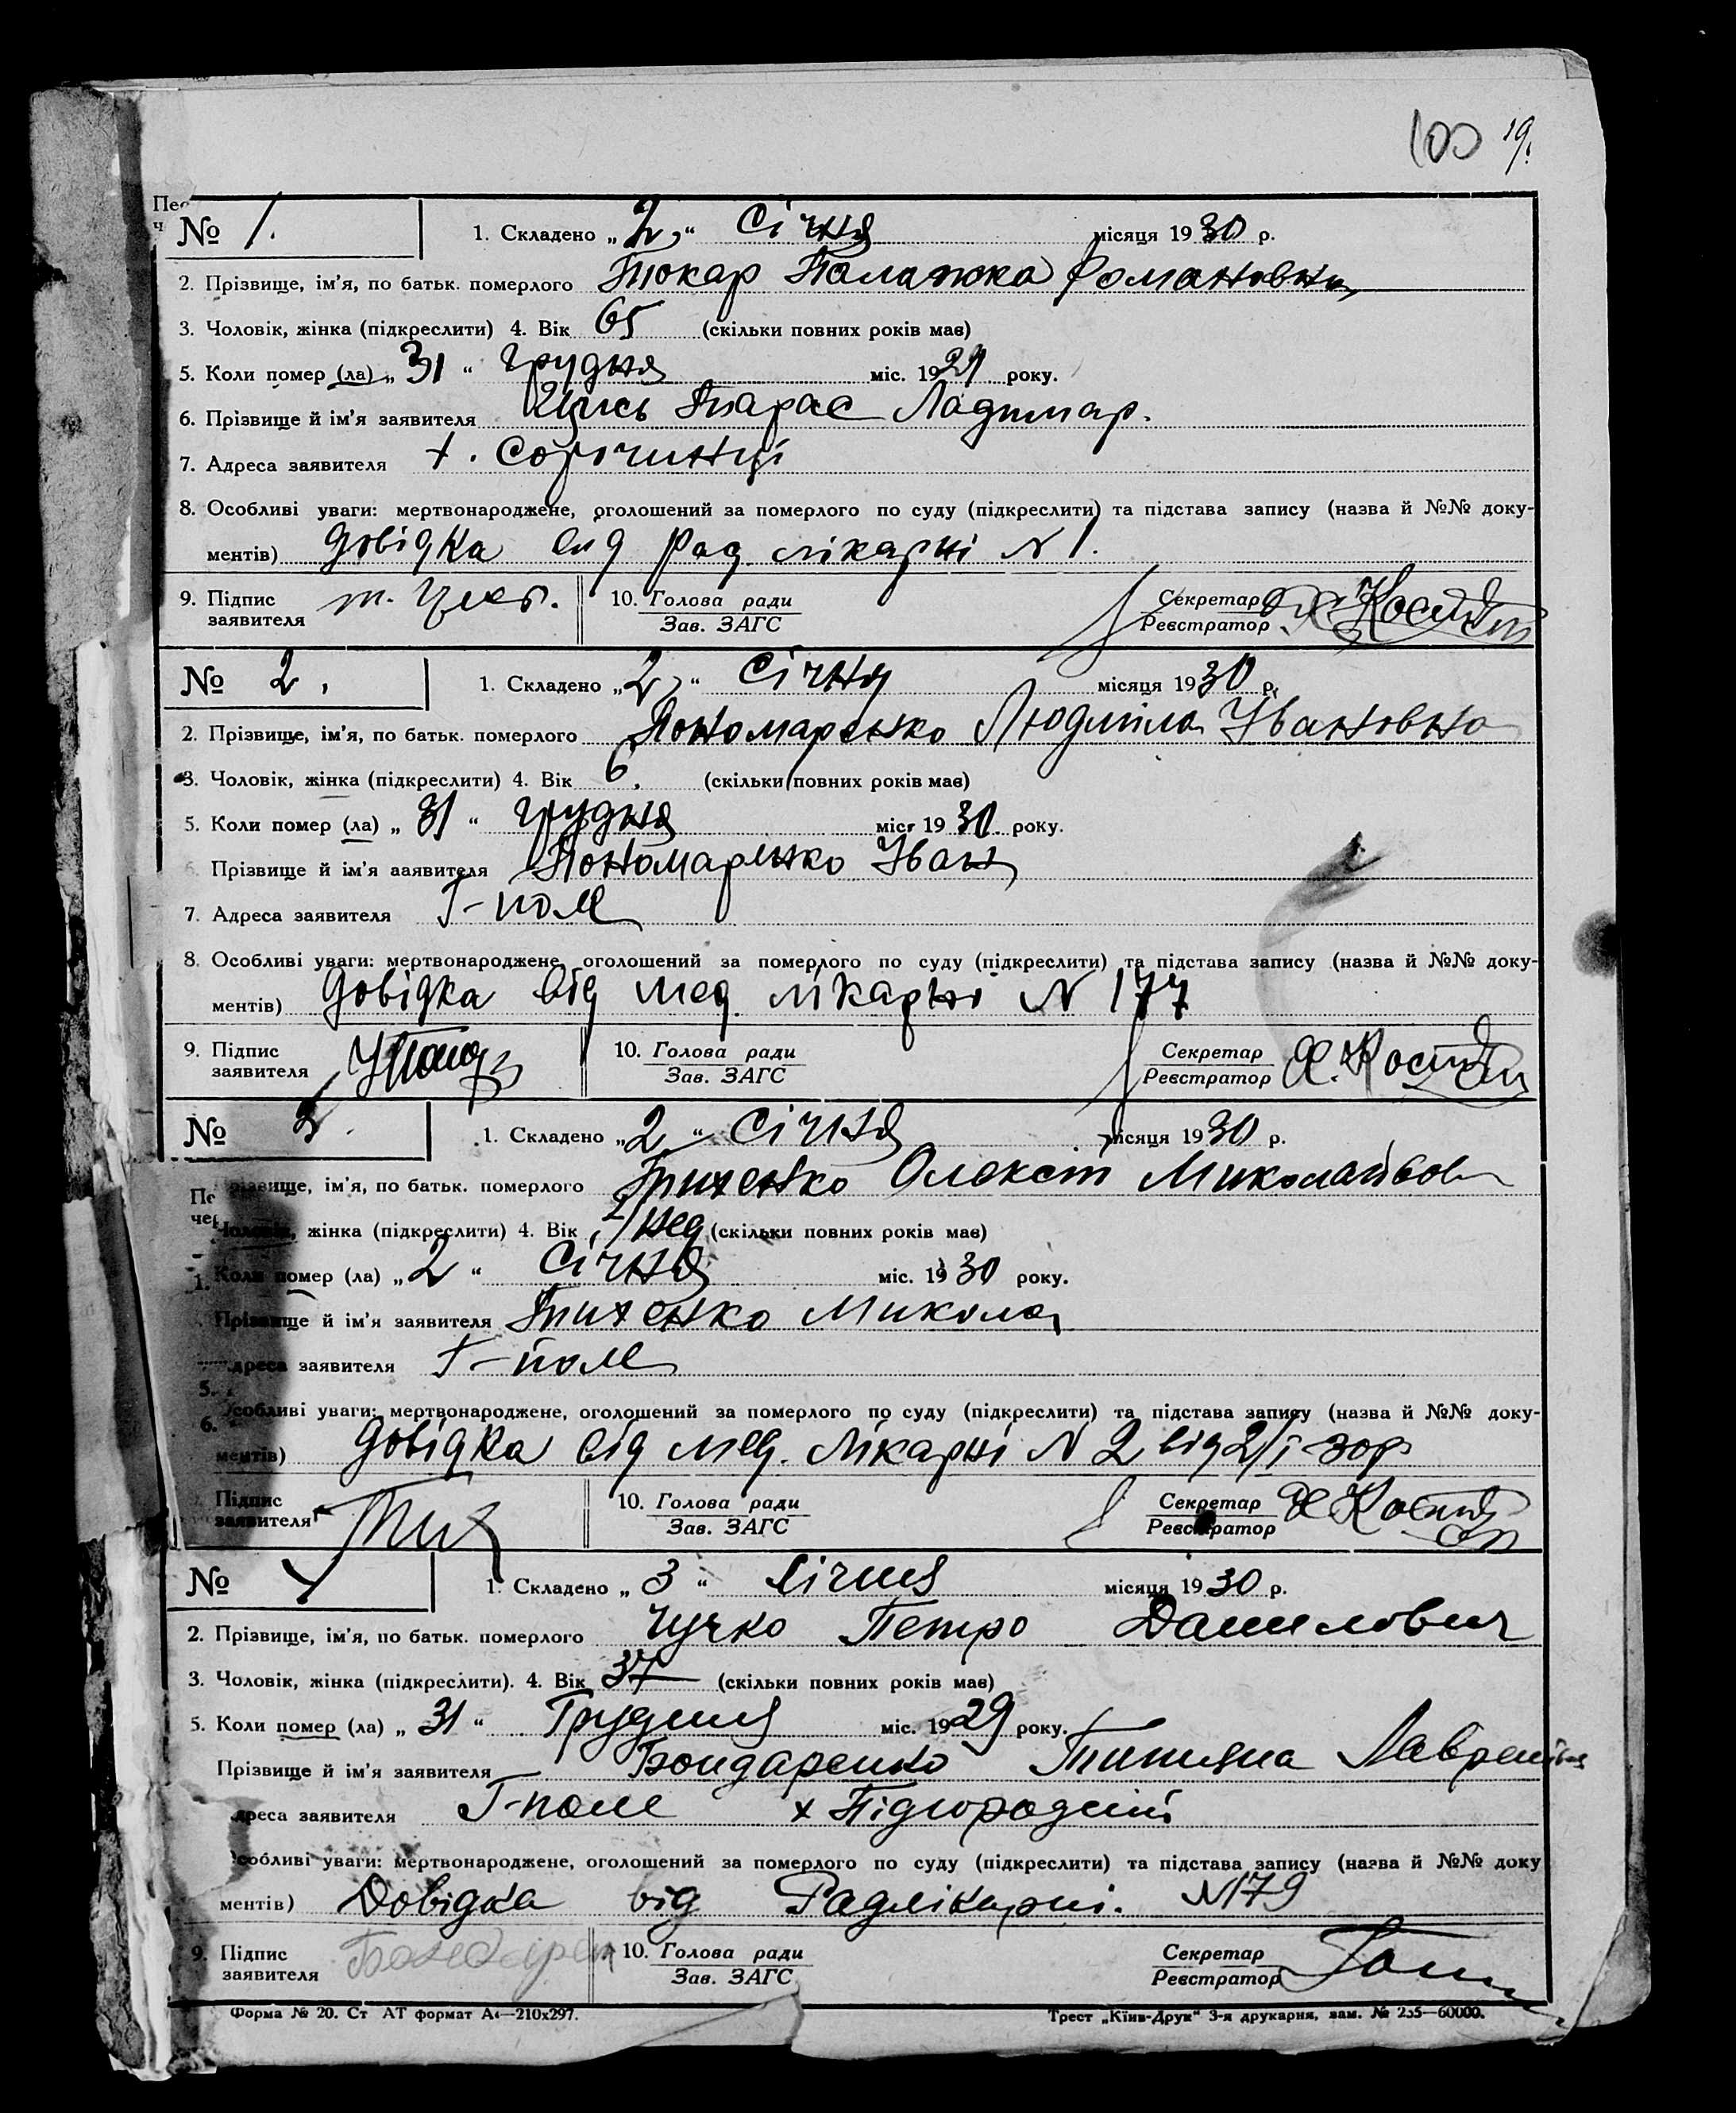 100 19.
№ 1. 1. Складено „2“ Січня місяця 1930 р.
2. Прізвище, ім'я, по батьк. померлого Токар Палажка Романовна
3. Чоловік, жінка (підкреслити) 4. Вік 65 (скільки повних років має)
5. Коли помер (ла) „31“ грудня міс. 1929 року.
6. Прізвище й ім'я заявителя Тарас
7. Адреса заявителя х. Сорочинці
8. Особливі уваги: мертвонароджене, оголошений за померлого по суду (підкреслити) та підстава запису (назва й №№ доку-
ментів) Довідка від Рад лікарні N 1.
9. Підпис 10. Голова ради Секретар
заявителя Зав. ЗАГС Реєстратор
№ 2. 1. Складено „2“ Січня місяця 1930 р.
2. Прізвище, ім'я, по батьк. померлого Пономаренко Людміла Івановна
3. Чоловік, жінка (підкреслити) 4. Вік 6. (скільки повних років має)
5. Коли помер (ла) „31“ грудня міс. 1930. року.
6. Прізвище й ім'я заявителя Пономаренко Іван
7. Адреса заявителя Г-поле
8. Особливі уваги: мертвонароджене, оголошений за померлого по суду (підкреслити) та підстава запису (назва й №№ доку-
ментів) Довідка від мед. лікарні N 177
9. Підпис 10. Голова ради Секретар
заявителя Зав. ЗАГС Реєстратор
№ 3. 1. Складено „2“ Січня місяця 1930 р.
Прізвище, ім'я, по батьк. померлого Тихенко Олексій Миколайов
Чоловік, жінка (підкреслити) 4. Вік нед (скільки повних років має)
Коли помер (ла) „2“ Січня міс. 1930 року.
Прізвище й ім'я заявителя Тихенко Микола
Адреса заявителя Г-поле
Особливі уваги: мертвонароджене, оголошений за померлого по суду (підкреслити) та підстава запису (назва й №№ доку-
ментів) Довідка від мед. лікарні N 2 від 2/I-30р
Підпис Тих 10. Голова ради Секретар
заявителя Зав. ЗАГС Реєстратор
№ 1. Складено „3“ Січня місяця 1930 р.
2. Прізвище, ім'я, по батьк. померлого Чучко Петро Данилович
3. Чоловік, жінка (підкреслити). 4. Вік 37 (скільки повних років має)
5. Коли помер (ла) „31“ Грудня міс. 1929 року.
Прізвище й ім'я заявителя Бондаренко Тетяна
Адреса заявителя Г-поле х Підгородній
Особливі уваги: мертвонароджене, оголошений за померлого по суду (підкреслити) та підстава запису (назва й №№ доку
ментів) Довідка від Радлікарні. N 179
9. Підпис Бондарен 10. Голова ради Секретар
заявителя Зав. ЗАГС Реєстратор
Форма № 20. Ст АТ формат А4—210х297. Трест „Київ-Друк“ 3-я друкарня, зам. № 235—60000.